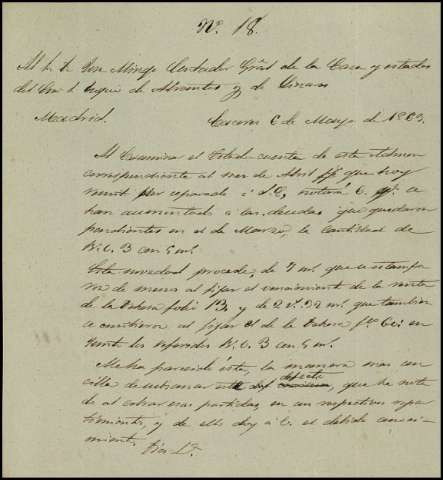 Nº. 18.
Contador Gral de la Casa y estados
del Sor. Duque de Abrantes y de Linares
Madrid. Caceres 6 de Mayo de 1863.
Al Examinar el Estado cuenta de esta Admon
correspondiente al mes de Abril que hoy
remito por separado á V. notará V. qe. se
han aumentado á las deudas que quedaron
pendientes en el de Marzo, la cantidad de
R.s 3 con 5 ms.
Esta novedad procede, de 7 ms. que se estampa
ron de menos al fijar el vencimiento de la renta
de la Dehesa folio 13, y de 2 rs. 32 ms. que tambien
se omitieron al fijar el de la Dehesa fo. 62: en
junto los referidos R.s 3 con 5 ms.
Me ha parecido ésta, la manera mas sen
cilla de subsanar este defecto, que he nota
do al cobrar esas partidas, en sus respectivos venci
mientos, y de ello doy á V. el debido conoci
miento.